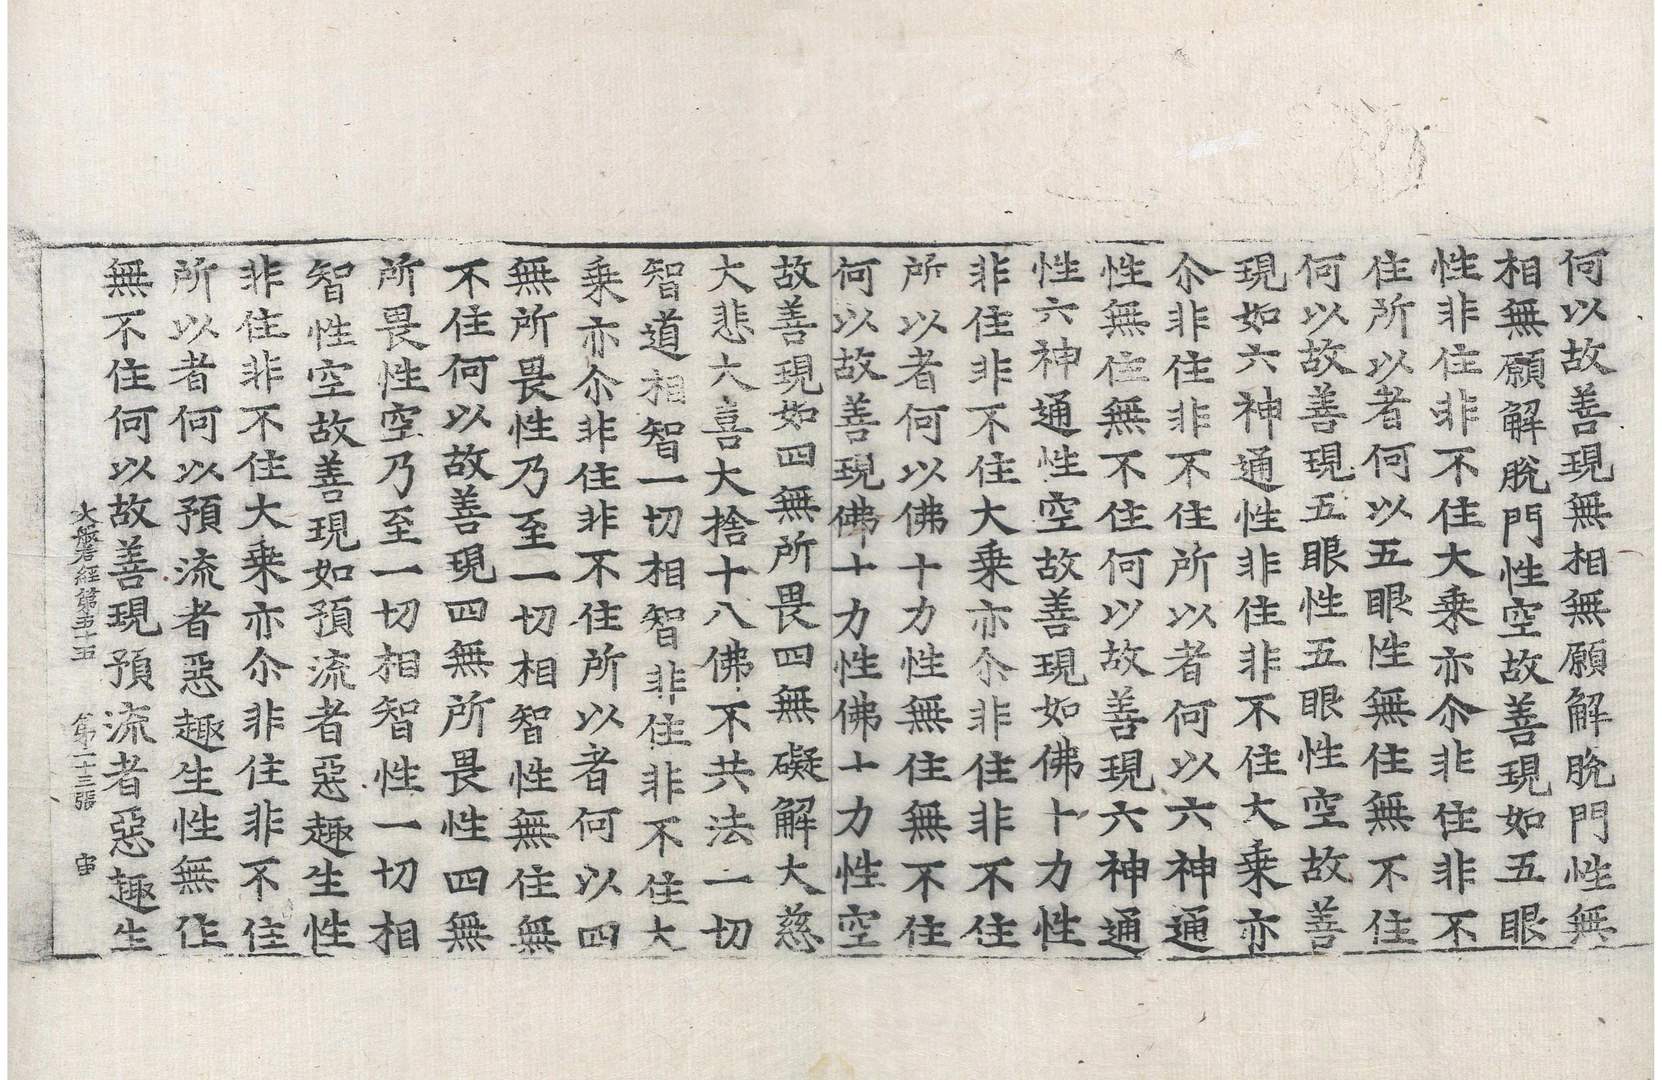 何以故善現無相無願解脫門性無
相無願解脫門性空故善現如五眼
性非住非不住大乘亦尒非住非不
住所以者何以五眼性無住無不住
何以故善現五眼性五眼性空故善
現如六神通性非住非不住大乘亦
尒非住非不住所以者何以六神通
性無住無不住何以故善現六神通
性六神通性空故善現如佛十力性
非住非不住大乘亦尒非住非不住
所以者何以佛十力性無住無不住
何以故善現佛十力性佛十力性空
故善現如四無所畏四無礙解大慈
大悲大喜大捨十八佛不共法一切
智道相智一切相智非住非不住大
乘亦尒非住非不住所以者何以四
無所畏性乃至一切相智性無住無
不住何以故善現四無所畏性四無
所畏性空乃至一切相智性一切相
智性空故善現如預流者惡趣生性
非住非不住大乘亦尒非住非不住
所以者何以預流者惡趣生性無住
無不住何以故善現預流者惡趣生
大般若經第五十五 第二十三張 宙